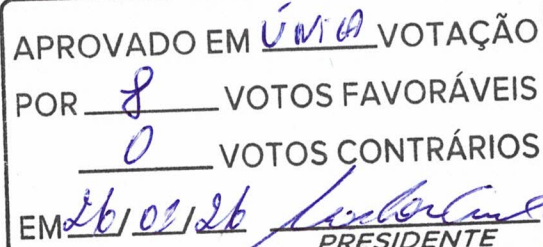 APROVADO EM ÚNICA VOTAÇÃO
POR 8 VOTOS FAVORÁVEIS
0 VOTOS CONTRÁRIOS
EM 26/02/26
PRESIDENTE